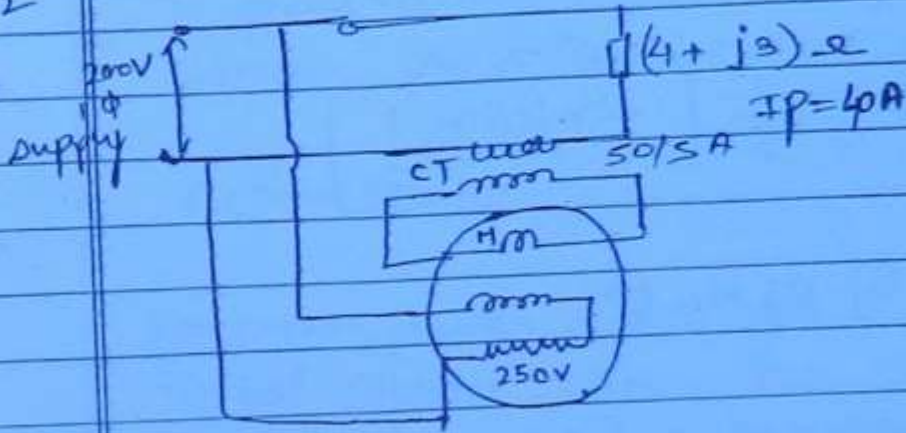 200V
1ϕ
supply
(4 + j3) Ω
IP = 40A
CT
50/5A
M
250V